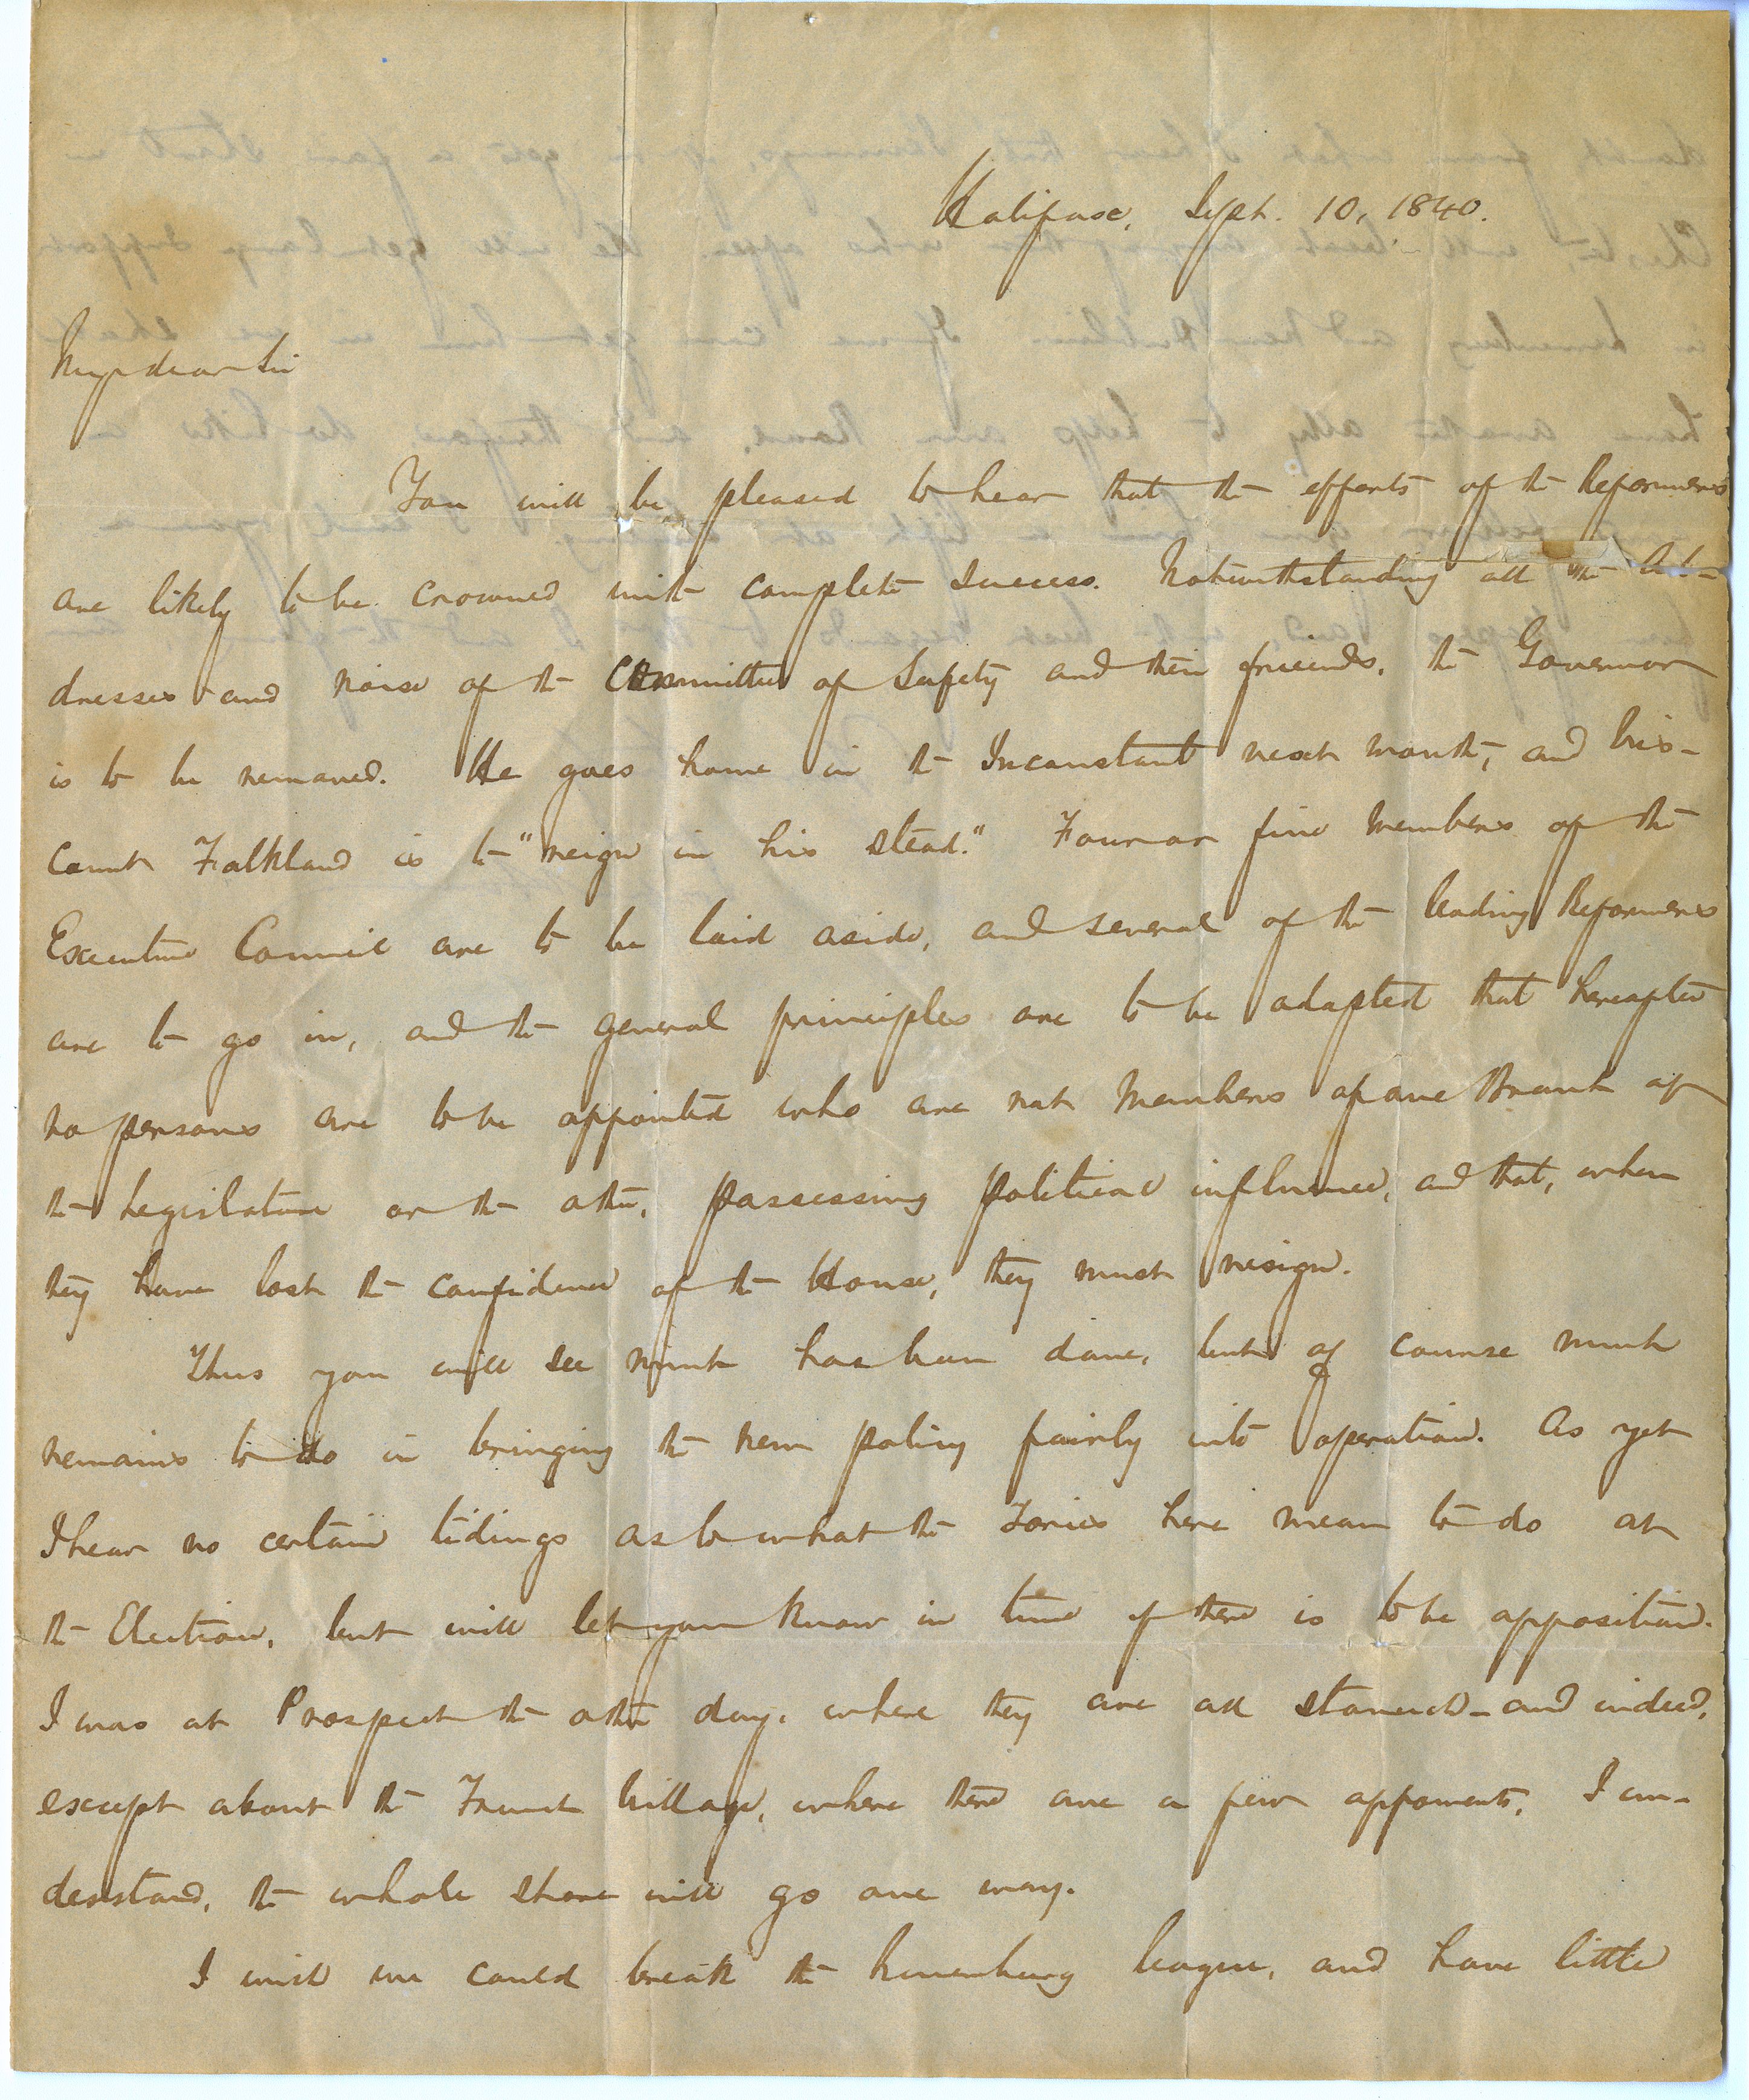 Halifax, Sept. 10, 1840.
My dear Sir
You will be pleased to hear that the efforts of the Reformers
are likely to be crowned with complete success. Notwithstanding all the Ad-
dresses and noise of the Committee of Safety and their friends, the Governor
is to be removed. He goes home in the Inconstant next month, and Vis-
count Falkland is to "reign in his stead." Four or five members of the
Executive Council are to be laid aside, and several of the leading Reformers
are to go in, and the general principles are to be adopted that hereafter
no persons are to be appointed who are not Members of one Branch of
the Legislature or the other, possessing political influence, and that, when
they have lost the confidence of the House, they must resign.
Thus you will see much has been done, but of course much
remains to do in bringing the new policy fairly into operation. As yet
I hear no certain tidings as to what the Tories here mean to do at
the Election, but will let you know in time if there is to be opposition.
I was at Prospect the other day, where they are all staunch - and indeed,
except about the French Village, where there are a few opponents, I un-
derstand, the whole shore will go one way.
I wish we could break the Lunenburg league, and have little